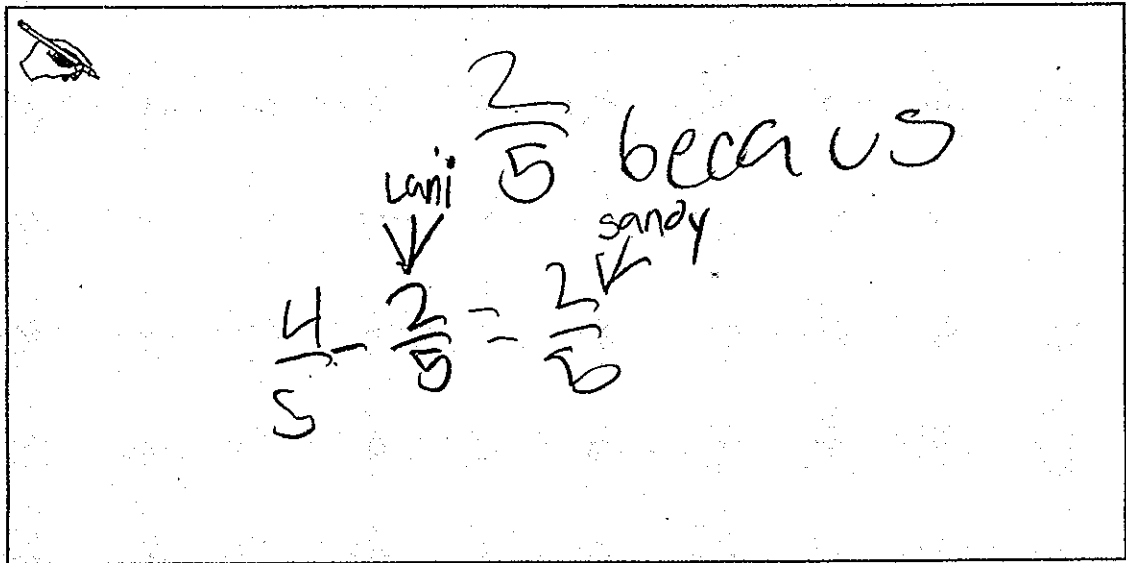 2/5 becaus
Lani
sandy
4/5 - 2/5 = 2/5